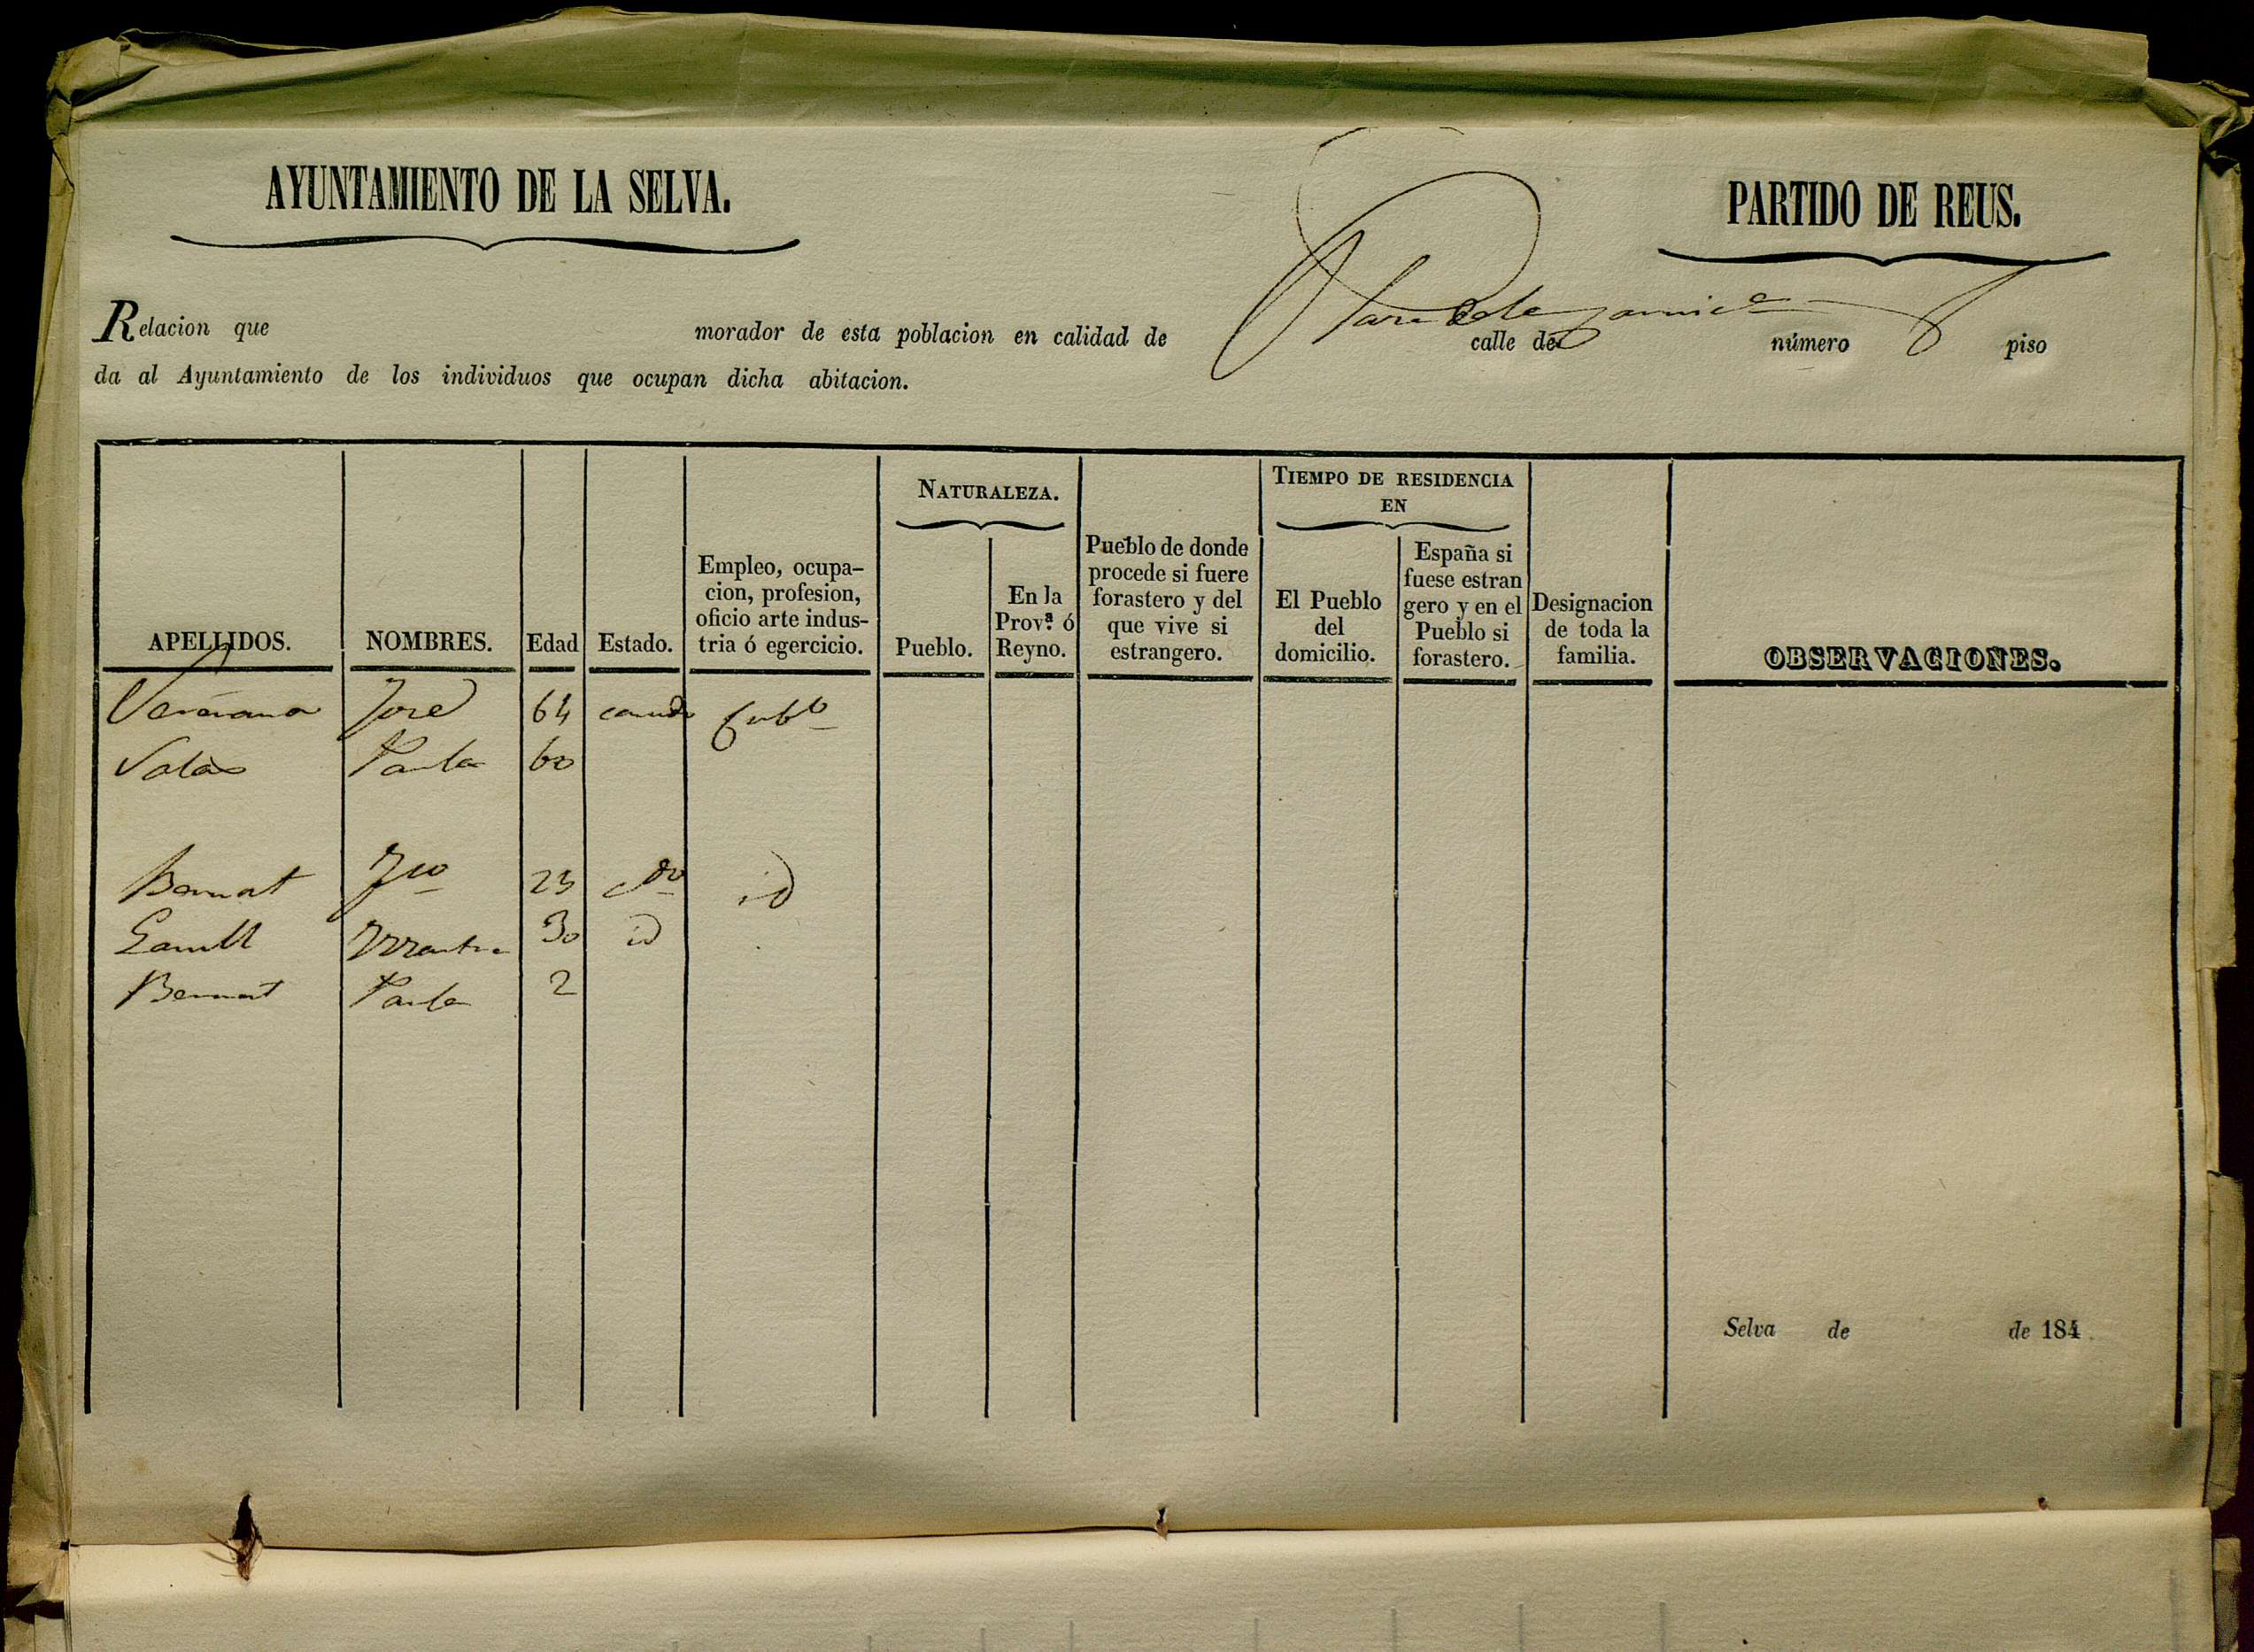 AYUNTAMIENTO DE LA SELVA.
PARTIDO DE REUS.
Relacion que morador de esta poblacion en calidad de calle de número piso
da al Ayuntamiento de los individuos que ocupan dicha abitacion.
APELLIDOS.
NOMBRES.
Edad
Estado.
Empleo, ocupa-
cion, profesion,
oficio arte indus-
tria ó egercicio.
NATURALEZA.
Pueblo.
En la
Prov.ª ó
Reyno.
Pueblo de donde
procede si fuere
forastero y del
que vive si
estrangero.
TIEMPO DE RESIDENCIA
EN
El Pueblo
del
domicilio.
España si
fuese estran
gero y en el
Pueblo si
forastero.
Designacion
de toda la
familia.
OBSERVACIONES.
José 64
Paula 60
Bernat 23 id
30 id
Bernat Paula 2
Selva de de 184